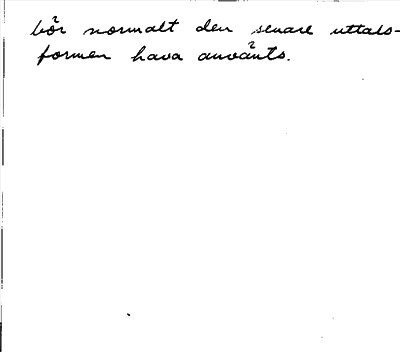 bör normalt den senare uttals-
formen hava använts.